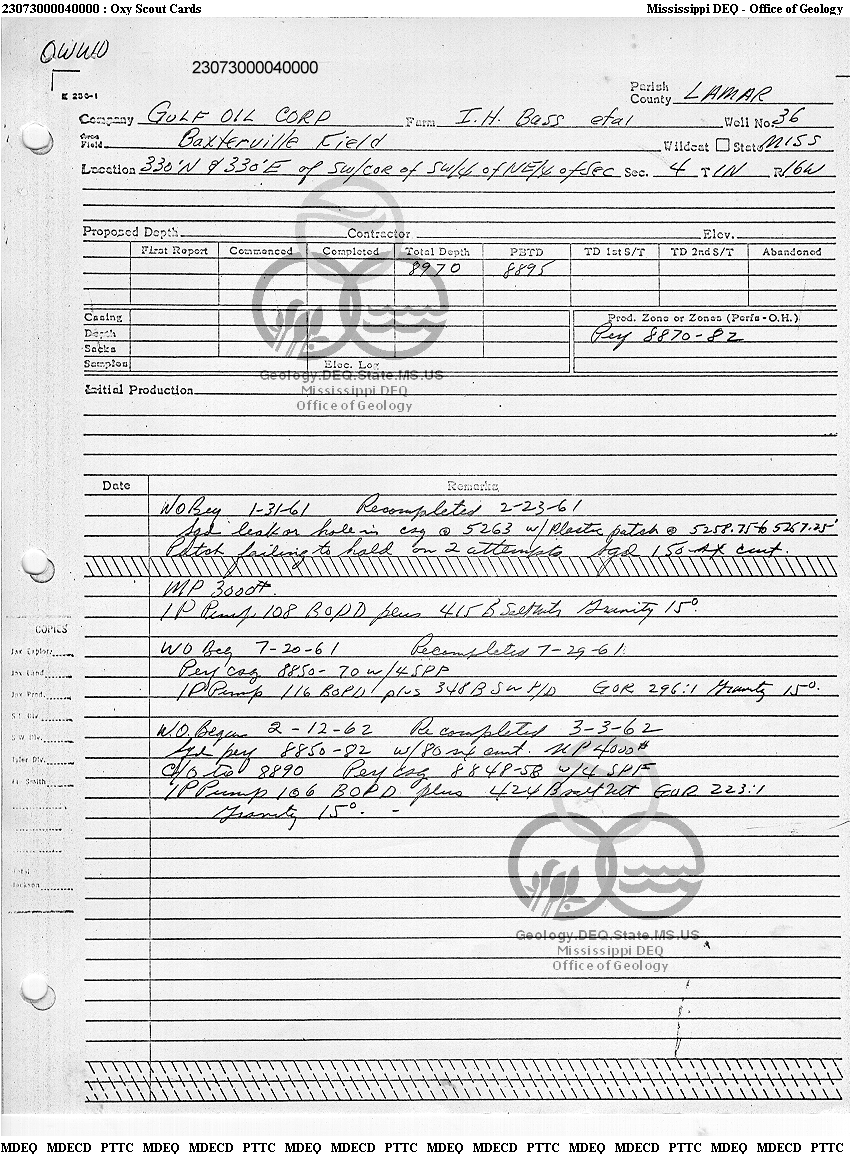 23073000040000 : Oxy Scout Cards Mississippi DEQ - Office of Geology
OWWO
23073000040000
K 256-1
Parish
County LAMAR
Company GULF OIL CORP Farm I.H. Bass etal Well No. 36
Area
Field Baxterville Field Wildcat State MISS
Location 330'N & 330'E of SW/COR of SW/4 of NE/4 of Sec Sec. 4 T 1N R 16W
Proposed Depth Contractor Elev.
First Report Commenced Completed Total Depth PBTD TD 1st S/T TD 2nd S/T Abandoned
8970 8895
Casing Prod. Zone or Zones (Perfs - O.H.)
Depth Perf 8870-82
Sacks
Samples Elec. Log
Geology.DEQ.State.MS.US
Mississippi DEQ
Office of Geology
Initial Production
Date Remarks
WO Beg 1-31-61 Recompleted 2-23-61
Sqd leak or hole in csg @ 5263 w/ Plastic patch @ 5258.75 to 5267.25'
Patch failing to hold on 2 attempts Sqd 150 sx cmt.
MP 3000#.
IP Pump 108 BOPD plus 415 B Salt Wtr Gravity 15°.
COPIES
Jax Explor.
WO Beg 7-20-61 Recompleted 7-29-61
Jax Land
Perf csg 8850-70 w/4 SPF
Jax Prod.
IP Pump 116 BOPD plus 348 B SW H/D GOR 296:1 Gravity 15°.
S.W. Div.
W.O. Began 2-12-62 Recompleted 3-3-62
Tyler Div.
Sqd perf 8850-82 w/80 sx cmt. MP 4000#
C/O to 8890 Perf csg 8848-58 w/4 SPF
IP Pump 106 BOPD plus 424 B salt wtr GOR 223:1
Gravity 15°. -
Jackson
Geology.DEQ.State.MS.US
Mississippi DEQ
Office of Geology
MDEQ MDECD PTTC MDEQ MDECD PTTC MDEQ MDECD PTTC MDEQ MDECD PTTC MDEQ MDECD PTTC MDEQ MDECD PTTC